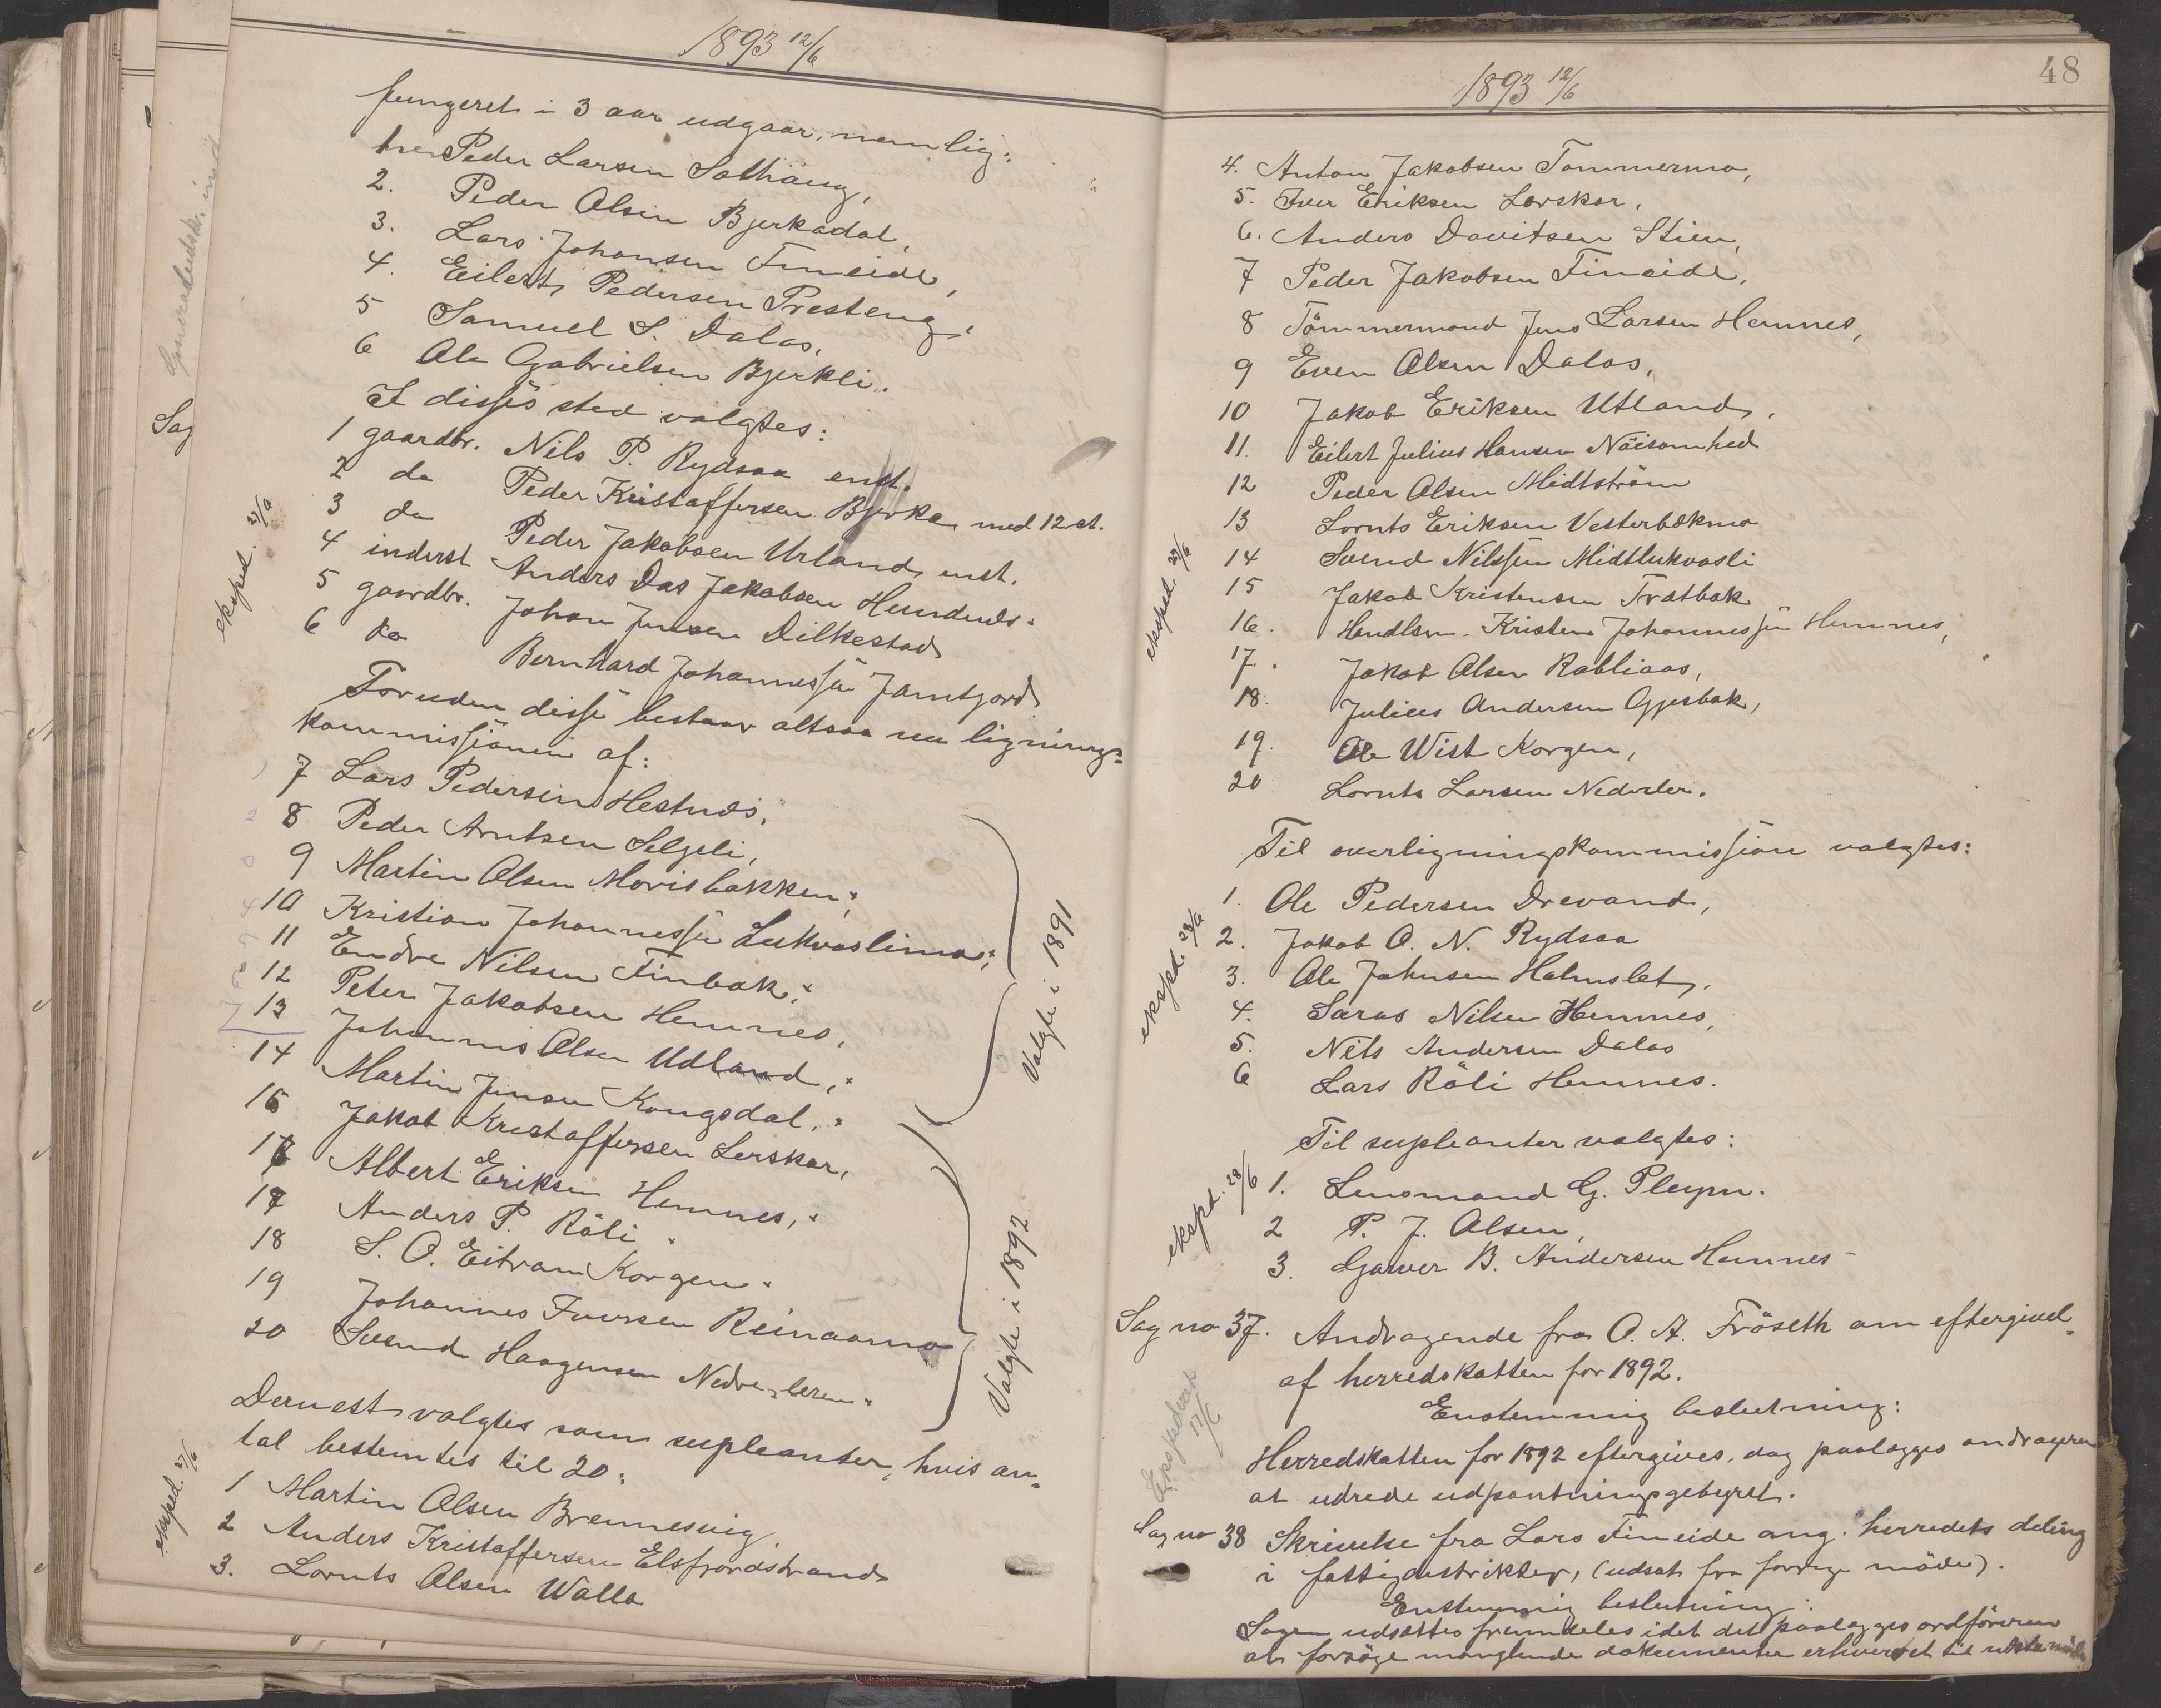 1893 12/6
fungeret i 3 aar udgaar, nemlig:
Peder Larsen Solhaug,
2. Peder Olsen Bjerkadal,
3. Lars Johansen Fineide,
4. Eilert Pedersen Presteng,
5 Samuel S. Dalos,
6 Ole Gabrielsen Bjerkli.
I disses sted valgtes:
1 gaardbr. Nils P. Rydsaa enst.
2 do Peder Kristoffersen Bjerka med 12 st.
3 do Peder Jakobsen Urland enst.
4 inderst Anders Jakobsen
5 gaardbr. Johan Jensen Dilkestad
6 do Bernhard Johannessen Jamtjord
eksped. 27/6
Foruden disse bestaar altsaa nu lignings-
kommissionen af:
7 Lars Pedersen Hestnæs,
8 Peder Arntsen Selgeli,
9 Martin Olsen Morisbakken,
10 Kristian Johannessen Lukvaslimo,
11 Endre Nilsen Finbak,
12 Peter Jakobsen Hemnes,
13 Johannis Olsen Udland,
14 Martin Jensen Kongsdal,
Valgte i 1891
15 Jakob Kristoffersen Lerskar,
16 Albert Eriksen Hemnes,
17 Anders P. Røli
18 S. O. Eitran Korgen
19 Johannes Iversen Reinaamo
20 Svend Haagensen Nedre-leren
Valgte i 1892
Dernest valgtes som supleanter, hvis an-
tal bestemtes til 20:
eksped. 27/6
1 Martin Olsen Brennesvig
2 Anders Kristoffersen Elsfjordstrand
3. Lornts Olsen Walla
Sag
48
1893 12/6
4. Anton Jakobsen Tommermo,
5. Iver Eriksen Lerskar,
6. Anders Davitsen Stien,
7 Peder Jakobsen Fineide,
8 Tömmermand Jens Larsen Hemnes,
9 Even Olsen Dalos,
10 Jakob Eriksen Utland,
11. Eilert Julius Hansen Nöisomhed
12 Peder Olsen Midtström
13 Lornts Eriksen Vesterbækmo
14 Svend Nilssen Midtlukvasli
15 Jakob Kristensen Trætbak
16. Handlsm. Kristen Johannessen Hemnes,
17. Jakob Olsen Rabliaas,
18. Julius Andersen Gjesbak,
19. Ole Wist Korgen,
20 Lornts Larsen Nederler.
eksped. 27/6
Til overligningskommission valgtes:
1. Ole Pedersen Drevand,
2. Jakob O. N. Rydsaa
3. Ole Johnsen Holmslet,
4. Saras Nilsen Hemnes,
5. Nils Andersen Dalos
6 Lars Röli Hemnes.
eksped. 28/6
Til supleanter valgtes:
1. Lensmand G. Pleym.
2 P. J. Olsen,
3. Garver B. Andersen Hemnes
eksped. 28/6
Sag no 37. Andragende fra O. A. Fröseth om eftergivel-
af herredskatten for 1892.
Enstemmig beslutning:
Herredskatten for 1892 eftergives, dog paalægges andrageren
at udrede udpantningsgebyret.
Ekspederet
Sag no 38 Skrivelse fra Lars Fineide ang. herredets deling
i fattigdistrikter, (udsat fra forrige möde).
Enstemmig beslutning:
Sagen udsættes fremdeles idet det paalægges ordföreren
at forsöge manglende dokumenter erhvervet til næste möde